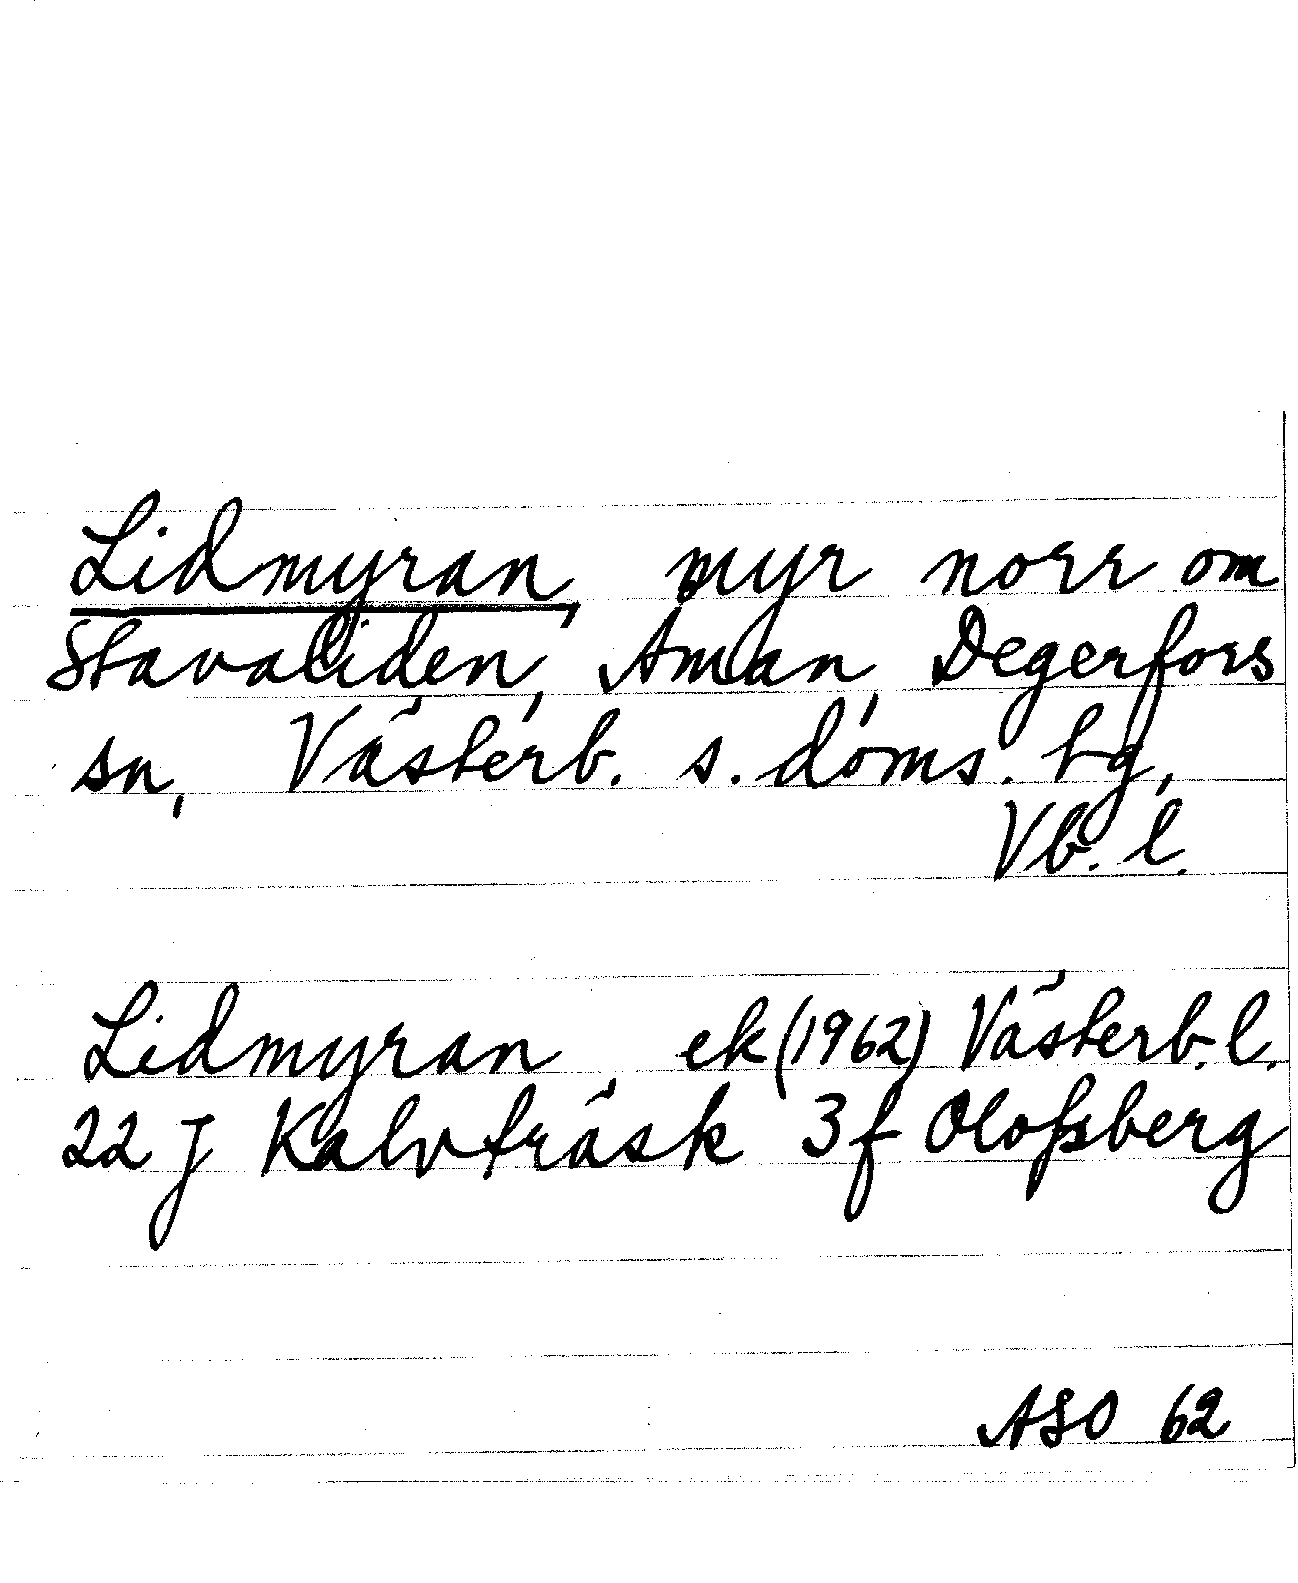 Lidmyran, myr norr om
Stavaliden, Åman, Degerfors
sn, Västerb. s. doms. tg,
Vb. l.
Lidmyran, ek (1962) Västerb. l.
22 J Kalvträsk 3f Olofsberg
ASO 62